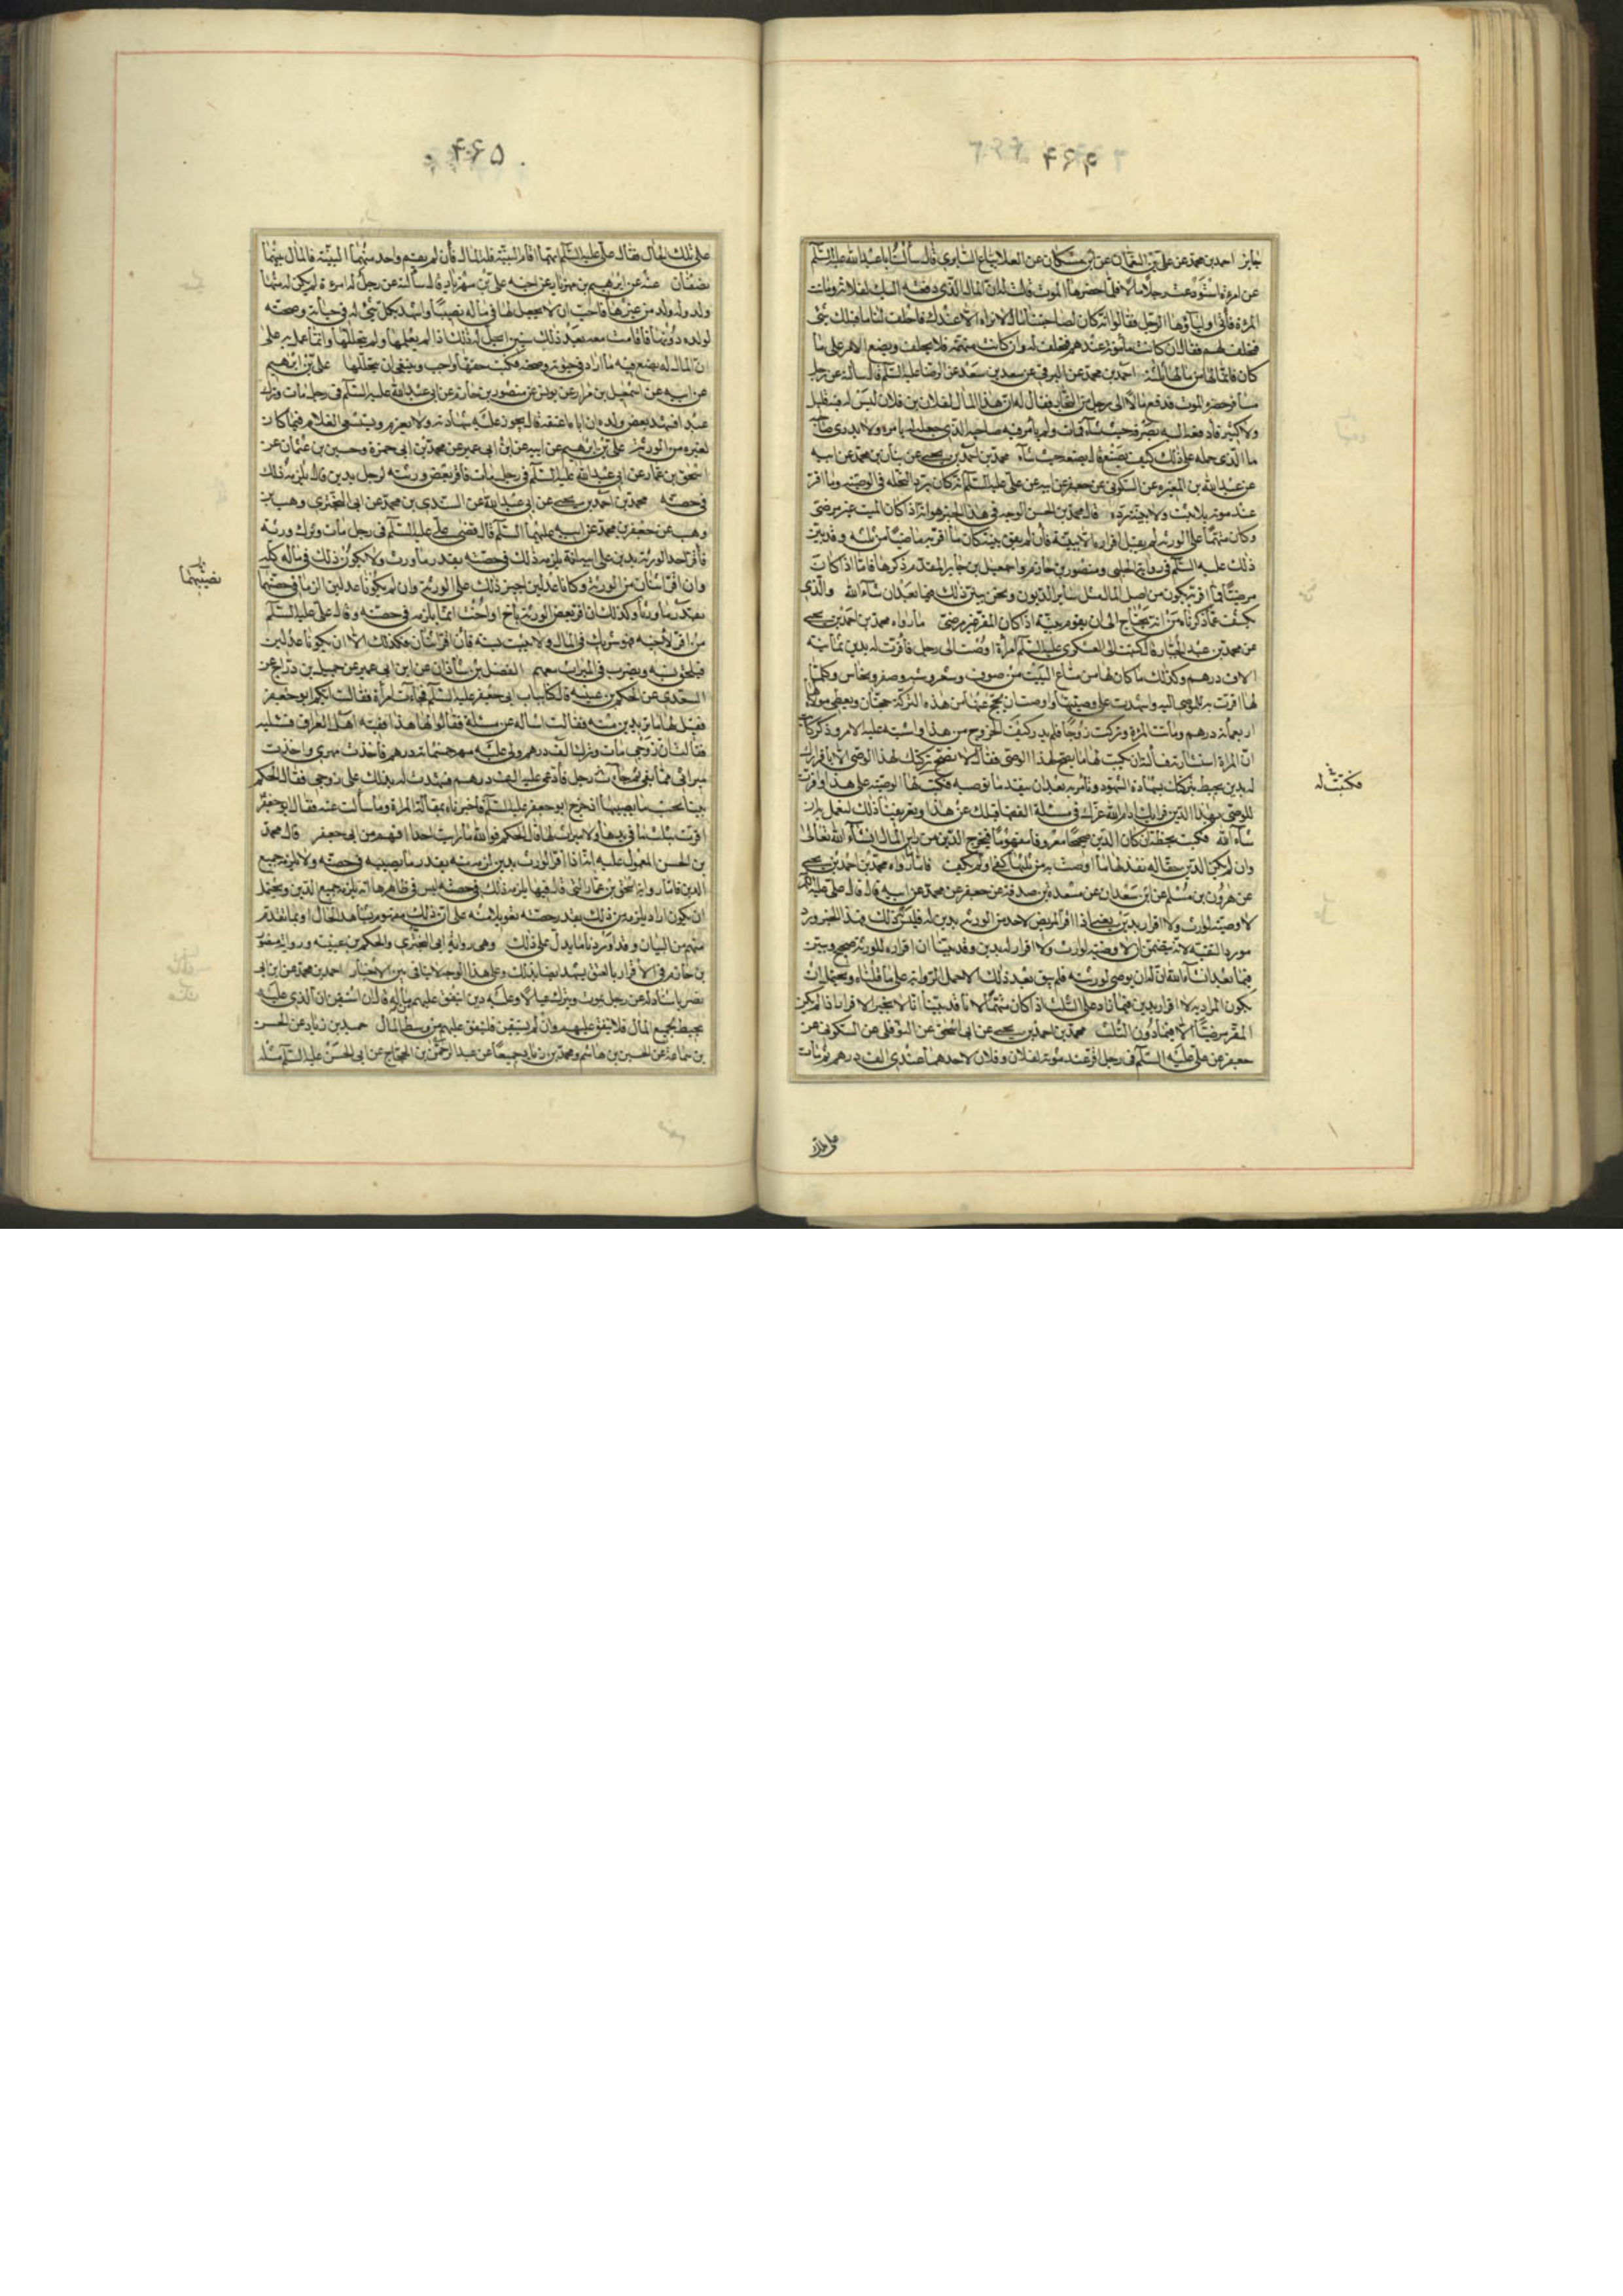 جايز احمد بن محمد عن علي بن النعمان عن ابن مسكان عن العلا بياع السابري قال سألت ابا عبد الله عليه السلم
عن امرءة استودعت رجلا مالا فلما حضرها الموت قالت له ان المال الذي دفعته اليك لفلانة وماتت
المرءة فاتى اولياؤها الرجل فقالوا انه كان لصاحبتنا مال لا نراه الا عندك فاحلف لنا ما قبلك شئ
فيحلف لهم فقال ان كانت مأمونة عندهم فيحلف لهم وان كانت متهمة فلا يحلف ويضع الامر على ما
كان فانما لها من مالها ثلثه احمد بن محمد عن البرقي عن سعد بن سعد عن الرضا عليه السلم قال سألته عن رجل
مسافر حضره الموت فدفع مالا الى رجل من التجار فقال له ان هذا المال لفلان بن فلان ليس له فيه قليل
ولا كثير فادفعه اليه يصرفه حيث شآء فمات ولم يأمر فيه صاحبه الذي جعله له بامر ولا يدري صاحبه
ما الذي حمله على ذلك كيف يصنع قال يضعه حيث شآء محمد بن احمد بن يحيى عن بنان بن محمد عن ابيه
عن عبد الله بن المغيرة عن السكوني عن جعفر عن ابيه عن علي عليه السلم انه كان يرد النحلة في الوصية وما اقر
عند موته بلا ثبت ولا بينة رده قال محمد بن الحسن الوجه في هذا الخبر هو انه اذا كان الميت غير مرضي
وكان متهما على الورثة لم يقبل اقراره الا ببينة فان لم يفق بينة كان ما اقر به ماضيا من ثلثه وقد بين
ذلك عليه السلم في رواية الحلبي ومنصور بن حازم واسمعيل بن جابر المقدم ذكرها فاما اذا كانت
مرضيا فما اقر به يكون من اصل المال مثل ساير الديون ونحن نبين ذلك فيما بعد ان شآء الله والذي
يكشف عما ذكرناه من انه يحتاج الى ان يقوم بينة اذا كان المقر غير مرضي ما رواه محمد بن احمد بن يحيى
عن محمد بن عبد الجبار قال كتبت الى العسكري عليه السلم امرأة اوصت الى رجل فاقرت له بدين ثمانية
الاف درهم وكذلك ما كان لها من متاع البيت من صوف وشعر وشبه وصفر ونحاس وكلما
لها اقرت به للموصى اليه واشهدت على وصيتها واوصت ان يحج عنها من هذه التركة حجتان ويعطى مولاة لها
اربعمائة درهم وماتت المرءة وتركت زوجا فلم يدر كيف الخروج من هذا واشتبه علينا الامر وذكر كاتب
ان المرءة استشارته فسألته ان يكتب لها ما يصح لهذا الوصي فقال لها لا تصح تركتك لهذا الوصي الا باقرارك
له بدين يحيط بتركتك بشهادة الشهود وتأمريه بعد ان ينفذ ما توصيه فكتب لها الوصية على هذا واقرت
للوصي بهذا الدين فرأيك ادام الله عزك في مسئلة الفقهاء قبلك عن هذا وتعرفنا ذلك لنعمل به ان
شآء الله فكتب بخطه ان كان الدين صحيحا معروفا مفهوما فيخرج الدين من راس المال ان شآء الله تعالى
وان لم يكن الدين حقا انفذ لها ما اوصت به من ثلثها كفى او لم يكف فاما ما رواه محمد بن احمد بن يحيى
عن هرون بن مسلم عن ابن سعدان عن مسعدة بن صدقة عن جعفر بن محمد عن ابيه قال قال علي عليه السلم
لا وصية لوارث ولا اقرار بدين يعني اذا اقر المريض لاحد من الورثة بدين له فليس له ذلك فهذا الخبر ورد
مورد التقية لانه يتضمن ان لا وصية لوارث ولا اقرار له بدين وقد بينا ان اقراره للورثة صحيح ونبين
فيما بعد ان شآء الله ان له ان يوصى لورثته فلم يبق بعد ذلك الا حمل الرواية على ما قلناه ويحتمل ان
يكون المراد به لا اقرار بدين فيما زاد على الثلث اذا كان متهما لانا قد بينا انا لا نجيز الاقرار اذا لم يكن
المقر مرضيا الا فيما دون الثلث محمد بن احمد بن يحيى عن ابي اسحق عن النوفلي عن السكوني عن
جعفر عن علي عليه السلم في رجل اقر عند موته لفلان وفلان لاحدهما عندي الف درهم ثم مات
فكتبت له
على تلك الحال فقال علي عليه السلم ايهما اقام البينة فله المال فان لم يقم واحد منهما البينة فالمال بينهما
نصفان عنه عن ابرهيم بن مهزيار عن اخيه علي بن مهزيار قال سألته عن رجل له امرءة لم يكن له منها
ولد وله ولد من غيرها فاحب ان لا يجعل لها في ماله نصيبا واشهد بكل شئ له في حياته وصحته
لولده دونها فاقامت معه بعد ذلك سنين ايحل له ذلك اذا لم يعلمها ولم يتحللها وانما عمل به على
ان المال له يصنع فيه ما اراد في حيوته وصحته فكتب حقها واجب وينبغي ان يتحللها علي بن ابرهيم
عن ابيه عن اسمعيل بن مرار عن يونس عن منصور بن حازم عن ابي عبد الله عليه السلم في رجل مات وترك
عبدا فشهد بعض ولده ان اباه اعتقه قال يجوز عليه شهادته ولا يغرم ويستسعى الغلام فيما كان
لغيره من الورثة علي بن ابرهيم عن ابيه عن ابن ابي عمير عن محمد بن ابي حمزة وحسين بن عثمان عن
اسحق بن عمار عن ابي عبد الله عليه السلم في رجل مات فاقر بعض ورثته لرجل بدين قال يلزمه ذلك
في حصته محمد بن احمد بن يحيى عن ابي عبد الله عن السندي بن محمد عن ابي البختري وهب بن
وهب عن جعفر بن محمد عن ابيه عليهما السلم قال قضى علي عليه السلم في رجل مات وترك ورثة
فاقر احد الورثة بدين على ابيه انه يلزمه ذلك في حصته بقدر ما ورث ولا يكون ذلك في ماله كله
وان اقر اثنان من الورثة وكانا عدلين اجيز ذلك على الورثة وان لم يكونا عدلين الزما في حصتهما
بقدر ما ورثا وكذلك ان اقر بعض الورثة باخ او اخت انما يلزمه في حصته وقال علي عليه السلم
من اقر لاخيه فهو شريك في المال ولا يثبت نسبه فان اقر اثنان فكذلك الا ان يكونا عدلين
فيلحق نسبه ويضرب في الميراث معهم الفضل بن شاذان عن ابن ابي عمير عن جميل بن دراج عن
السعدي عن الحكم بن عيينة قال كنا بباب ابي جعفر عليه السلم فجاءت امرأة فقالت ايكم ابو جعفر
فقيل لها ما تريدين منه فقالت اساله عن مسئلة فقالوا لها هذا فقيه اهل العراق فسليه
فقالت ان زوجي مات وترك الف درهم ولي عليه مهر خمسمائة درهم فاخذت مهري واخذت
ميراثي مما بقي ثم جآء رجل فادعى عليه الف درهم فشهدت له بذلك على زوجي فقال الحكم
فبينا نحسب ما يصيبها اذ خرج ابو جعفر عليه السلم فاخبرناه بمقالة المرءة وما سألت عنه فقال ابو جعفر
اقرت بثلث ما في يدها ولا ميراث لها قال الحكم فو الله ما رايت احدا افهم من ابي جعفر قال محمد
بن الحسن المعمول عليه انه اذا اقر الوارث بدين لزمه منه بقدر ما يصيبه في حصته ولا يلزمه جميع
الدين فاما رواية اسحق بن عمار التي قال فيها يلزمه ذلك في حصته ليس في ظاهرها انه يلزمه جميع الدين ويحتمل
ان يكون اراد يلزمه من ذلك بقدر حصته
بن حازم في الاقرار بالعتق يشهد ايضا بذلك وعلى هذا الوجه لا ينافي بين الاخبار احمد بن محمد عن ابن ابي
نصر باسناد له عن رجل يموت ويترك عيالا وعليه دين اينفق عليهم من ماله قال ان استيقن ان الذي عليه
يحيط بجميع المال فلا ينفق عليهم وان لم يستيقن فلينفق عليهم من وسط المال حميد بن زياد عن الحسن
بن سماعة عن الحسين بن هاشم ومحمد بن زياد جميعا عن عبد الرحمن بن الحجاج عن ابي الحسن عليه السلم مثله
نصيبهما